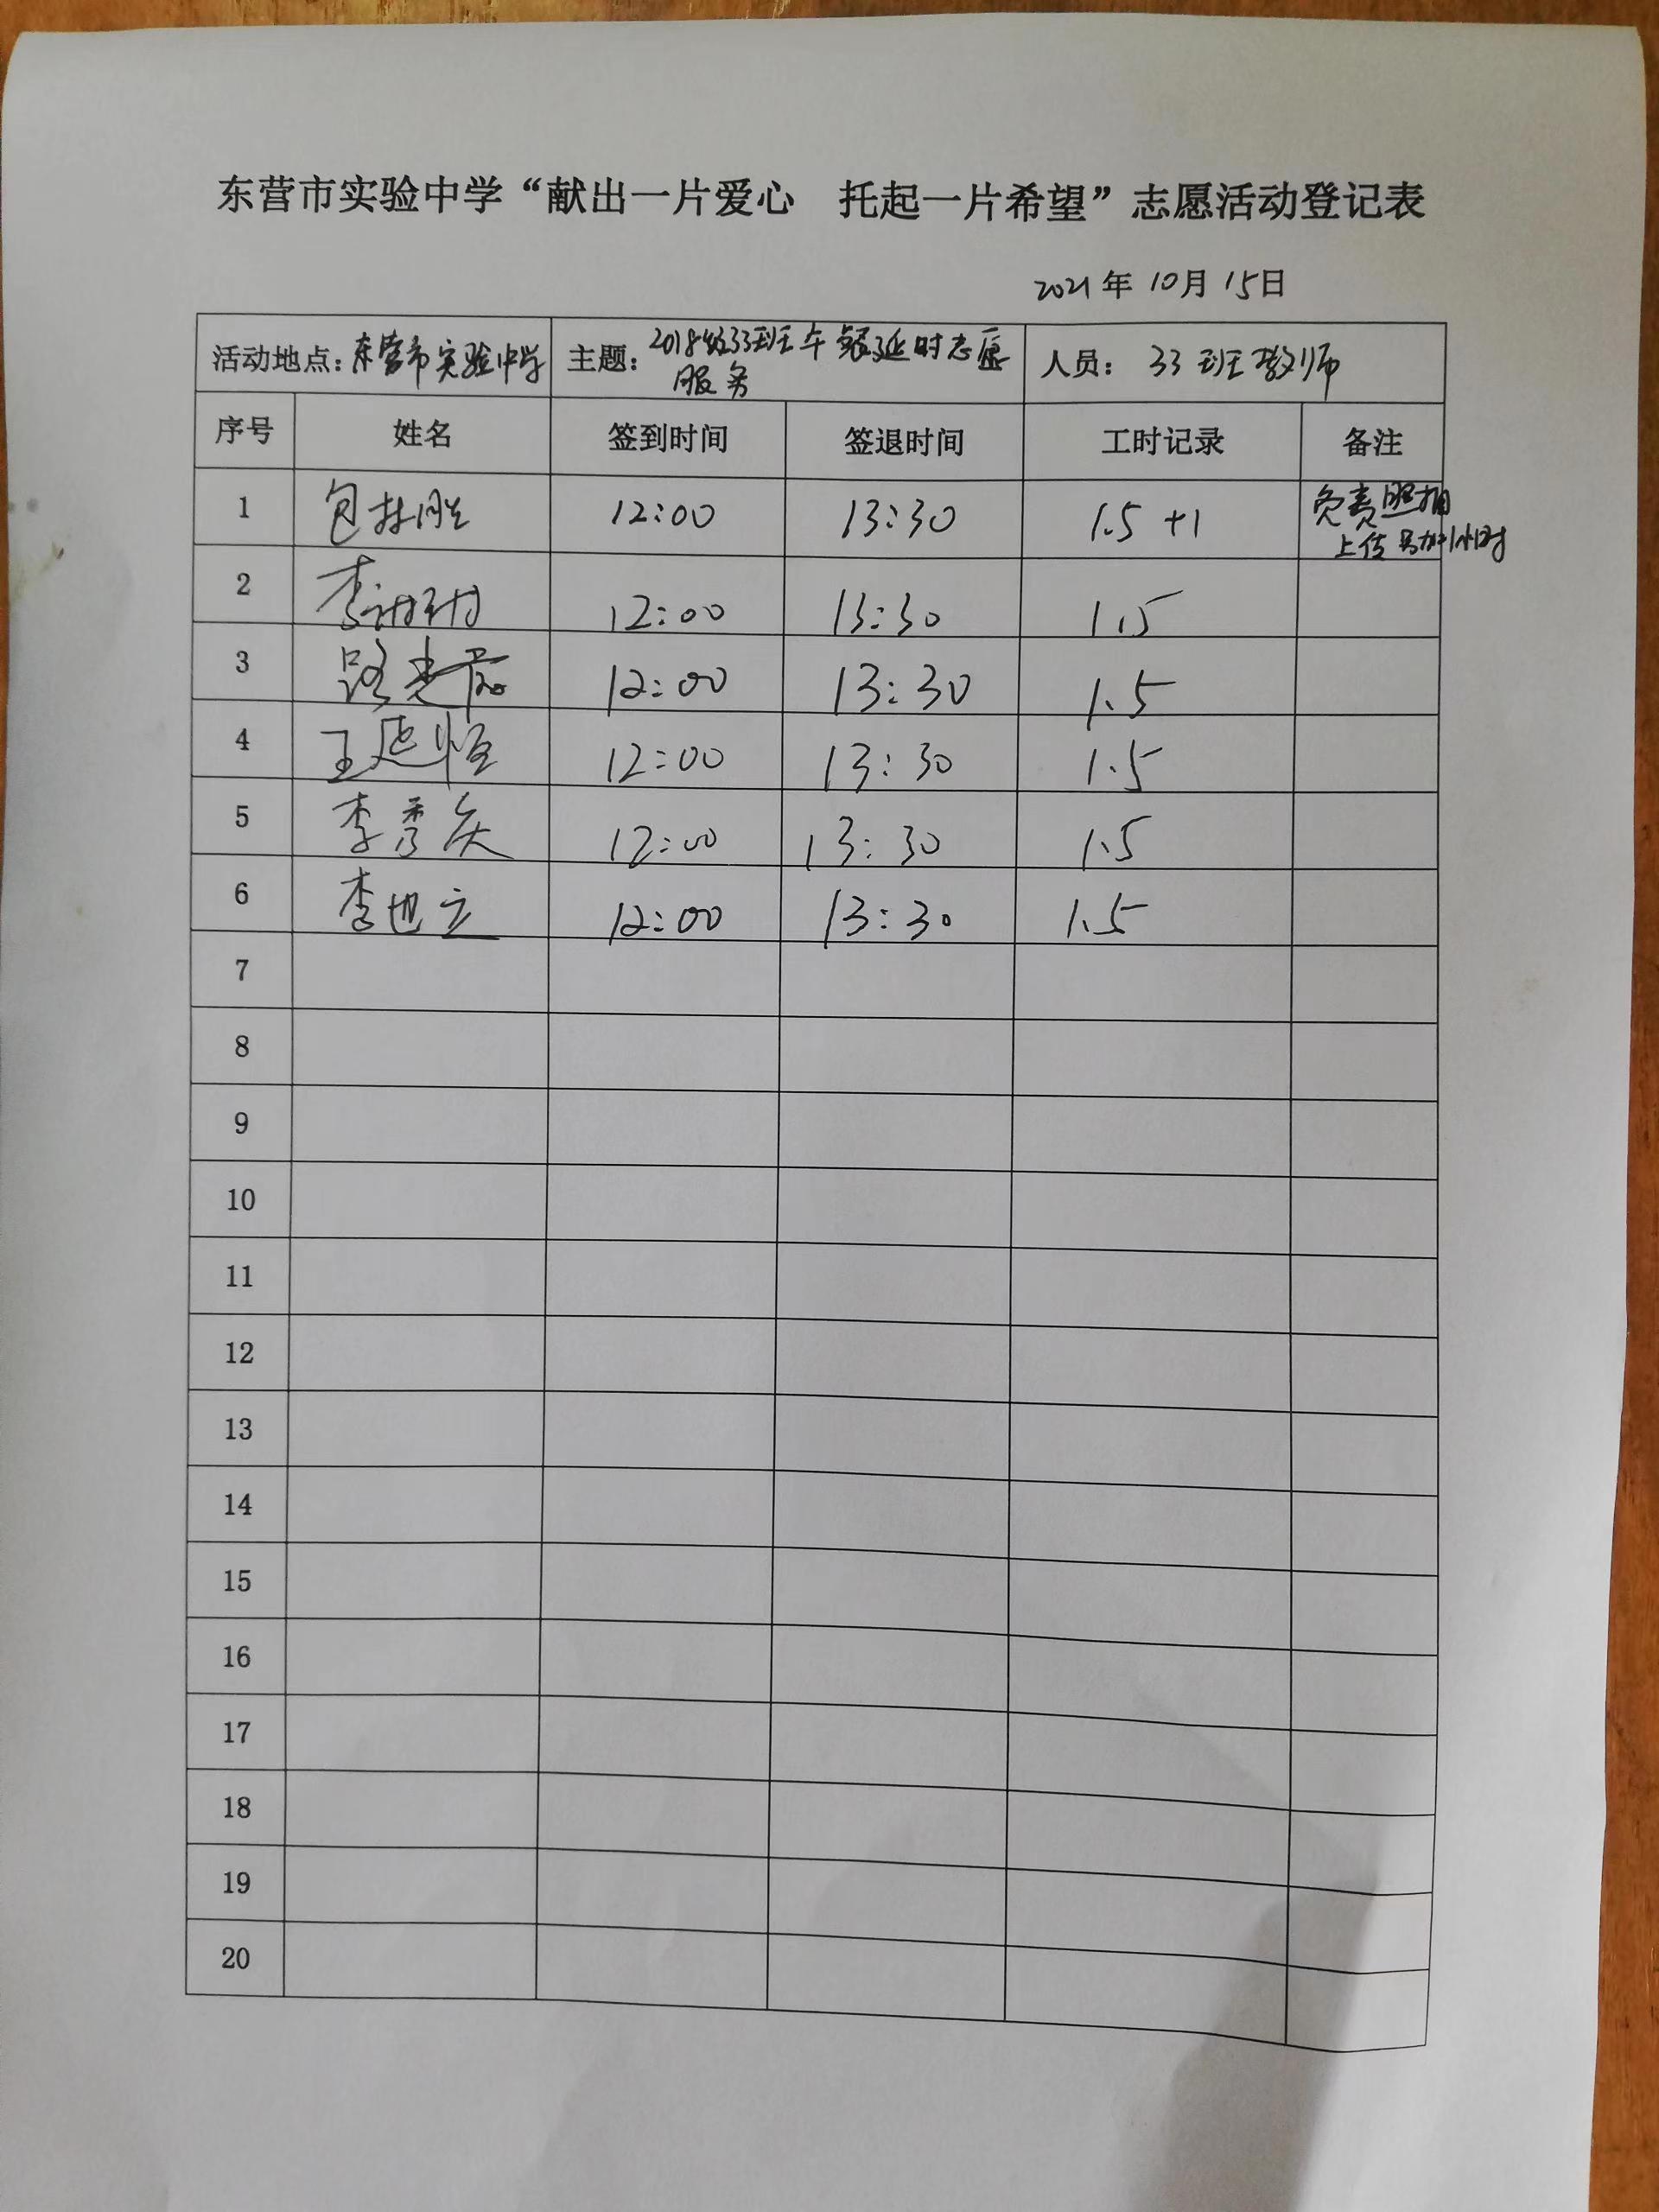 东营市实验中学“献出一片爱心 托起一片希望”志愿活动登记表
2021年 10月 15日
活动地点：东营市实验中学 主题：2018级33班午餐延时志愿服务 人员：33班教师
序号 姓名 签到时间 签退时间 工时记录 备注
1 包林胜 12:00 13:30 1.5+1 负责照相
上传 另加1小时
2 李 12:00 13:30 1.5
3 路 12:00 13:30 1.5
4 王延恒 12:00 13:30 1.5
5 李秀庆 12:00 13:30 1.5
6 李世立 12:00 13:30 1.5
7
8
9
10
11
12
13
14
15
16
17
18
19
20